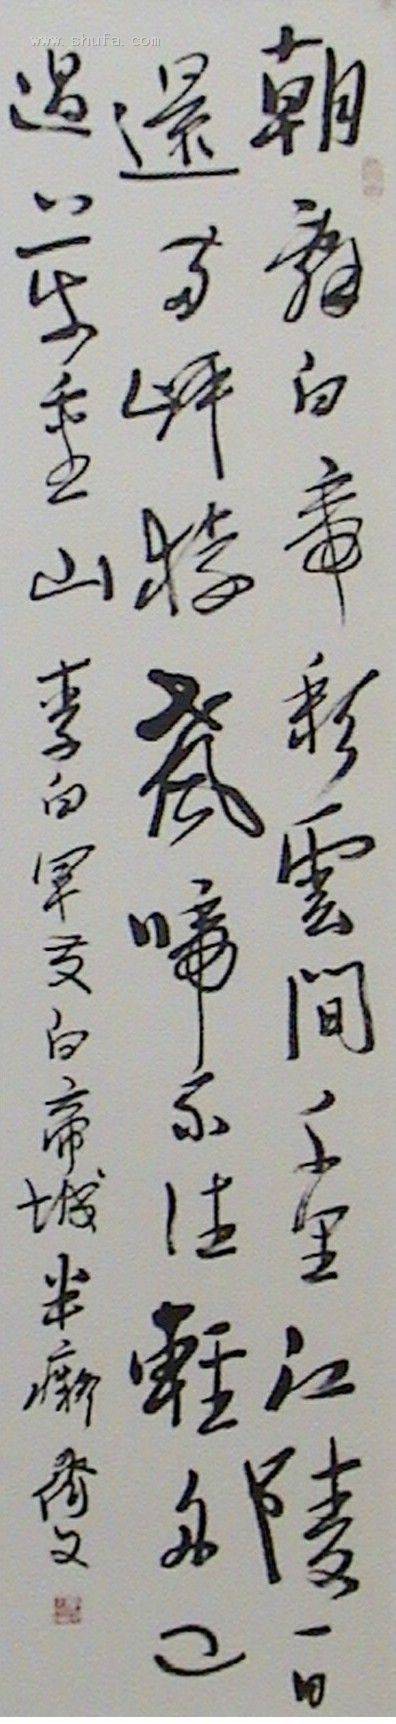 www.shufa.com
朝辭白帝彩雲間千里江陵一日
還兩岸猿聲啼不住輕舟已
過萬重山 李白早发白帝城 米癡